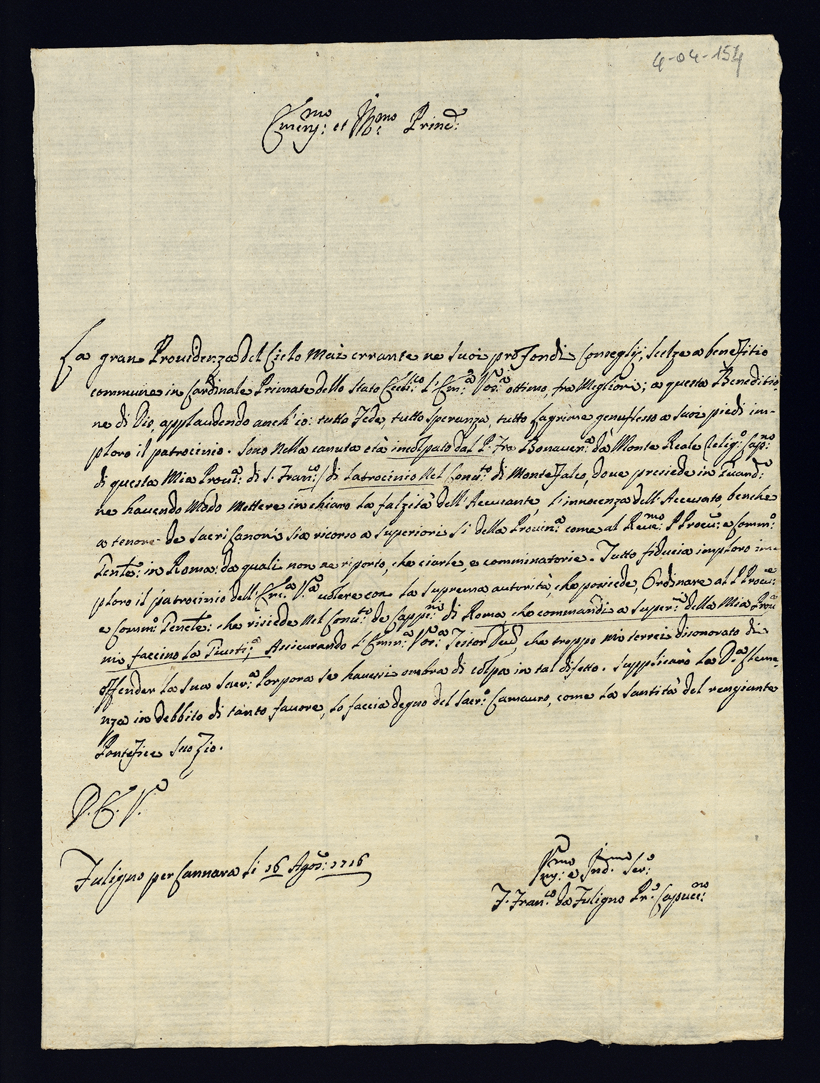 4-04-154
Emin:mo et R:mo Princ:
La gran Providenza del Cielo mai errante ne suoi profondi Consegly, scelze a benefitio
commune in Cardinale Primate dello Stato Eccl:co l'Em:a Vos:a ottimo, fra Megliori; a questa Beneditio,
ne di Dio, applaudendo anch'io: tutto Fede, tutto speranza, tutto Lagrime genuflesso a suoi piedi im-
ploro il patrocinio. Sono nella canuta età incolpato dal P. fra Bonaven:a dà Monte Reale Relig:o Cap:no
di questa Mia Prov:a di S. Fran:co/ di Latrocinio nel Conv:to di Montefalco, dove presiede in Guard:o
ne havendo Modo mettere in chiaro la falzità dell'Accusante, l'innocenza dell'Accusato, benche
a tenore de sacri Canoni sia ricorso a superiori si della Provin:a come al Reve:mo P. Procu:e e Comm:o
Gen:le: in Roma: da quali non ne riporto, che ciarle, e comminatorie. Tutto fiducia imploro im-
ploro il patrocinio dell'Em:a V:a volere con la suprema autorità, che posiede, Ordinare al P. Procu:e
e Comm:o Gen:le: che risiede nel Conv:to de Capp:ni di Roma che commandi a Super:ri della Mia Prov:a
mi faccino la Giusti:a, Assicurando l'Emin:a Vos:a Testor Deũ, che troppo mi terrei disonorato di
offender la sua Sacr:a Porpora se havessi ombra di colpa in tal difetto. Supplicarò la D:a Cleme-
nza in debbito di tanto favore, lo faccia degno del sacr:o Camauro, come la santità del rengiante
Pontefice suo Zio.
D. E. V:a
Fuligno per Cannara li 16 Agos:o 1716
Um:mo e Ind:mo Ser:e
F. Fran:co da Fuligno Pr:e Capucci:no